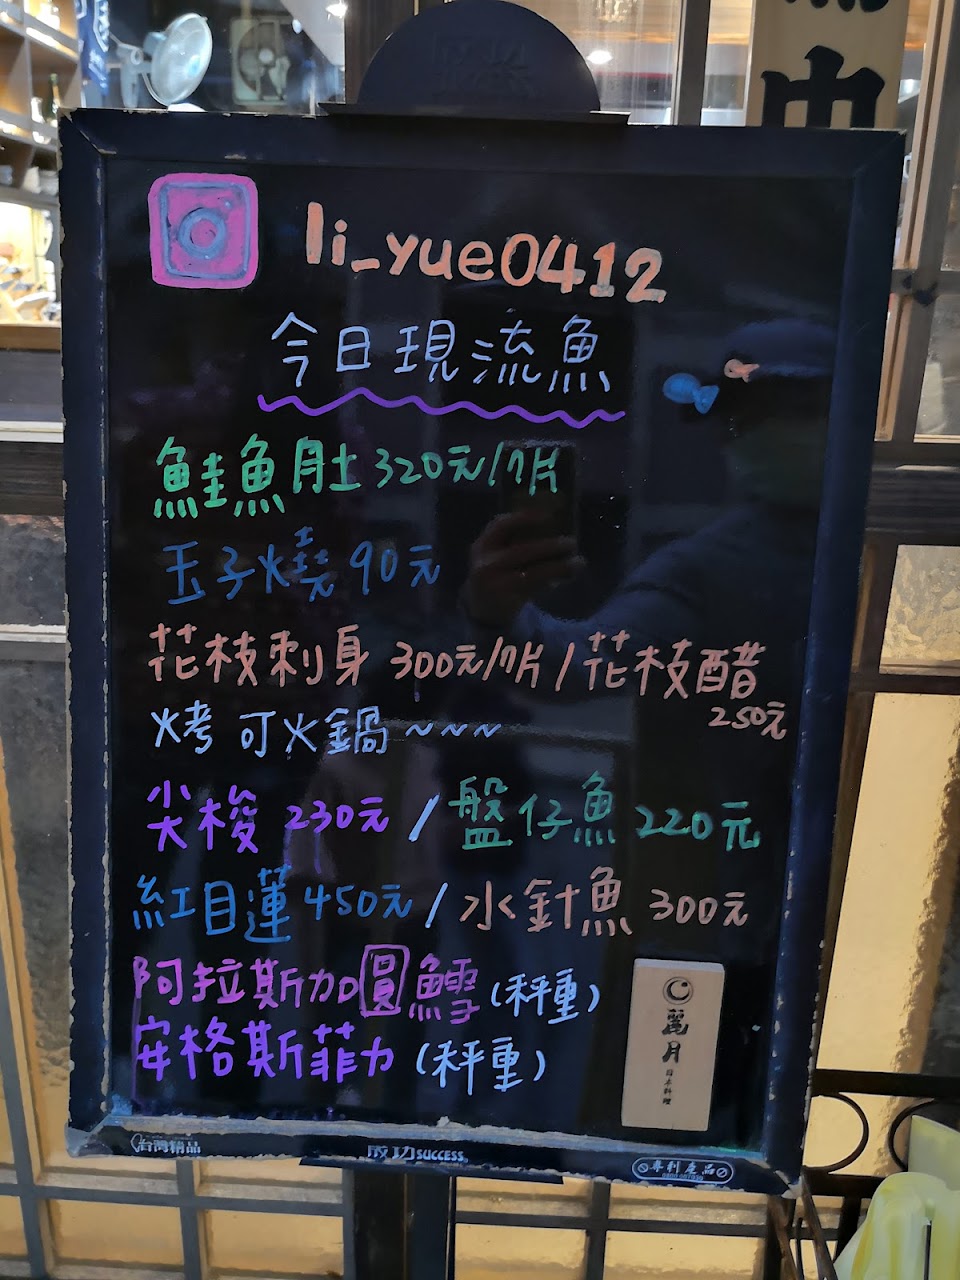 中
li_yue0412
今日現流魚
鮭魚月土320元/7片
玉子燒90元
花枝刺身 300元/7片/花枝醋
250元
烤可火鍋~~~
尖梭230元/盤仔魚220元
紅目蓮450元/水針魚300元
阿拉斯加圓鱈(秤重)
安格斯菲力(秤重)
麗月
日本料理
台灣精品
成功SUCCESS
專利產品